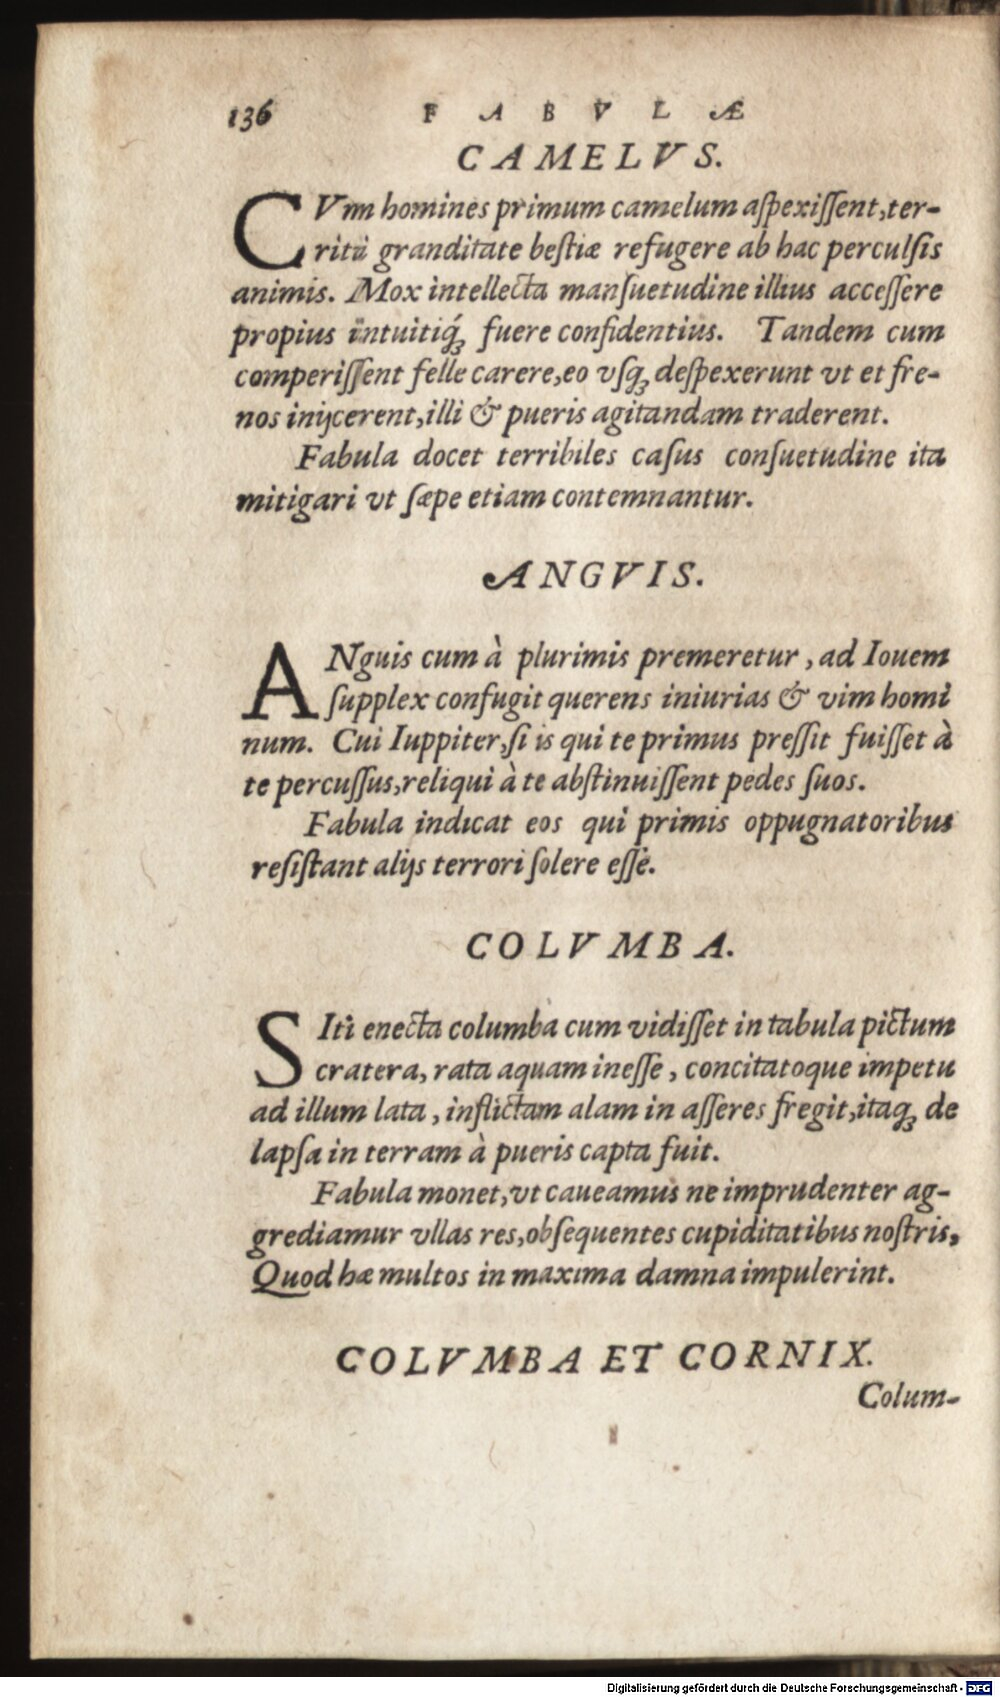 136 FABVLÆ
CAMELVS.
CVm homines primum camelum aſpexiſſent, ter-
riti granditate beſtiæ refugere ab hac perculſis
animis. Mox intellecta manſuetudine illius acceſſere
propius intuitiq́ꝫ fuere confidentius. Tandem cum
comperiſſent felle carere, eo vſqꝫ deſpexerunt vt et fre-
nos inijcerent, illi & pueris agitandam traderent.
Fabula docet terribiles caſus conſuetudine ita
mitigari vt ſæpe etiam contemnantur.
ANGVIS.
ANguis cum à plurimis premeretur, ad Iouem
ſupplex confugit querens iniurias & vim homi
num. Cui Iuppiter, ſi is qui te primus preſſit fuiſſet à
te percuſſus, reliqui à te abſtinuiſſent pedes ſuos.
Fabula indicat eos qui primis oppugnatoribus
reſiſtant alijs terrori ſolere eſſe.
COLVMBA.
SIti enecta columba cum vidiſſet in tabula pictum
cratera, rata aquam ineſſe, concitatoque impetu
ad illum lata, inflictam alam in aſſeres fregit, itaqꝫ de
lapſa in terram à pueris capta fuit.
Fabula monet, vt caueamus ne imprudenter ag-
grediamur vllas res, obſequentes cupiditatibus noſtris,
Quod hæ multos in maxima damna impulerint.
COLVMBA ET CORNIX.
Colum-
Digitalisierung gefördert durch die Deutsche Forschungsgemeinschaft - DFG